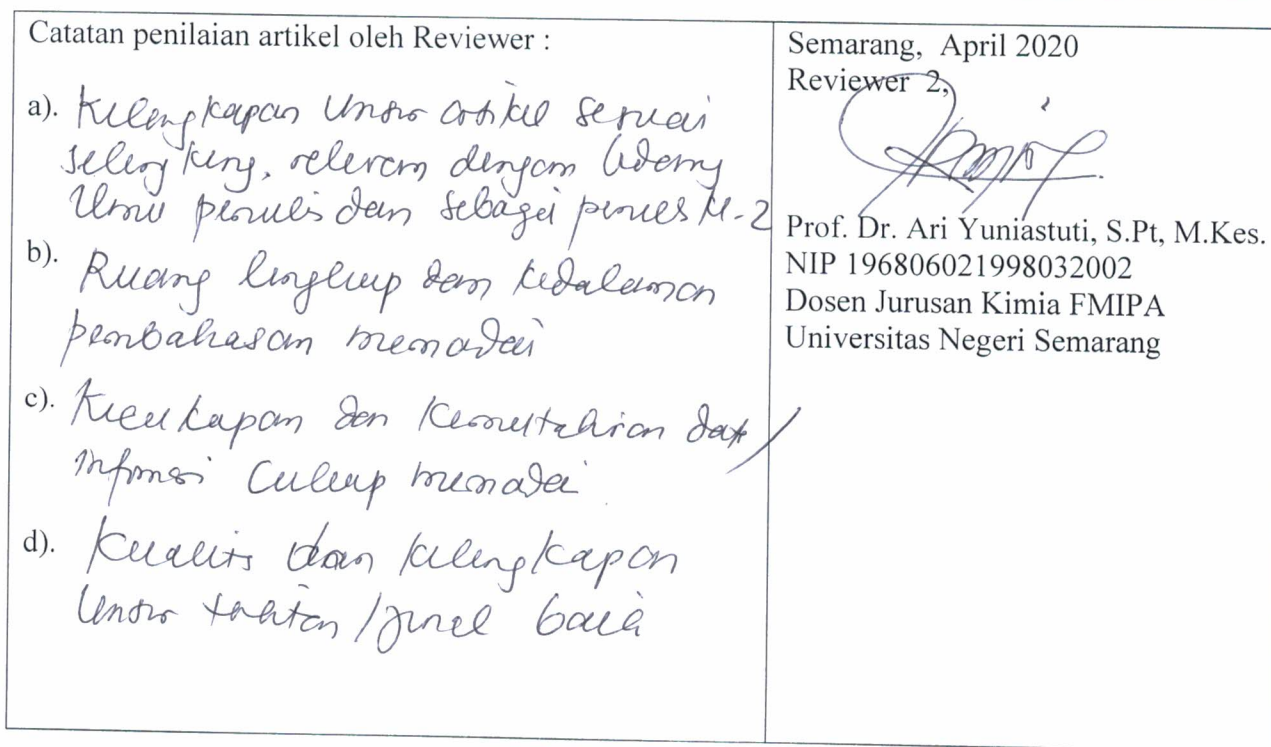 Catatan penilaian artikel oleh Reviewer :
a). Kelengkapan Unsur artikel sesuai
relevan dengan bidang
Ilmu penulis dan sebagai penulis ke-2
b). Ruang lingkup dan kedalaman
pembahasan memadai
c). Kecukapan dan Kemutahiran data/
informasi Cukup memadai
d). Kualits dan kelengkapan
Unsur /jurnal baik
Semarang, April 2020
Reviewer 2,
Prof. Dr. Ari Yuniastuti, S.Pt, M.Kes.
NIP 196806021998032002
Dosen Jurusan Kimia FMIPA
Universitas Negeri Semarang